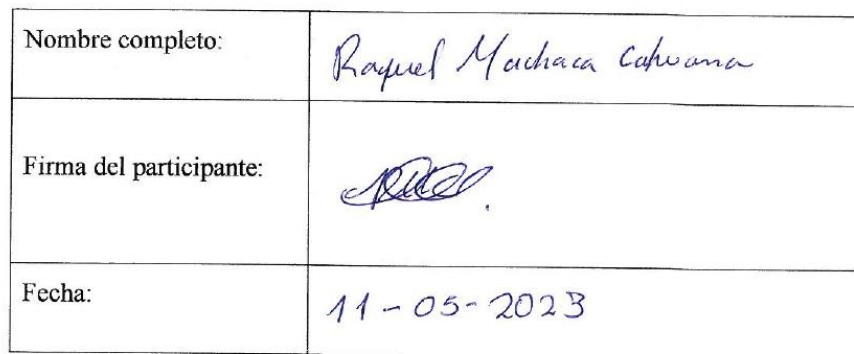 Nombre completo: Raquel Machaca Cahuana
Firma del participante:
Fecha: 11-05-2023